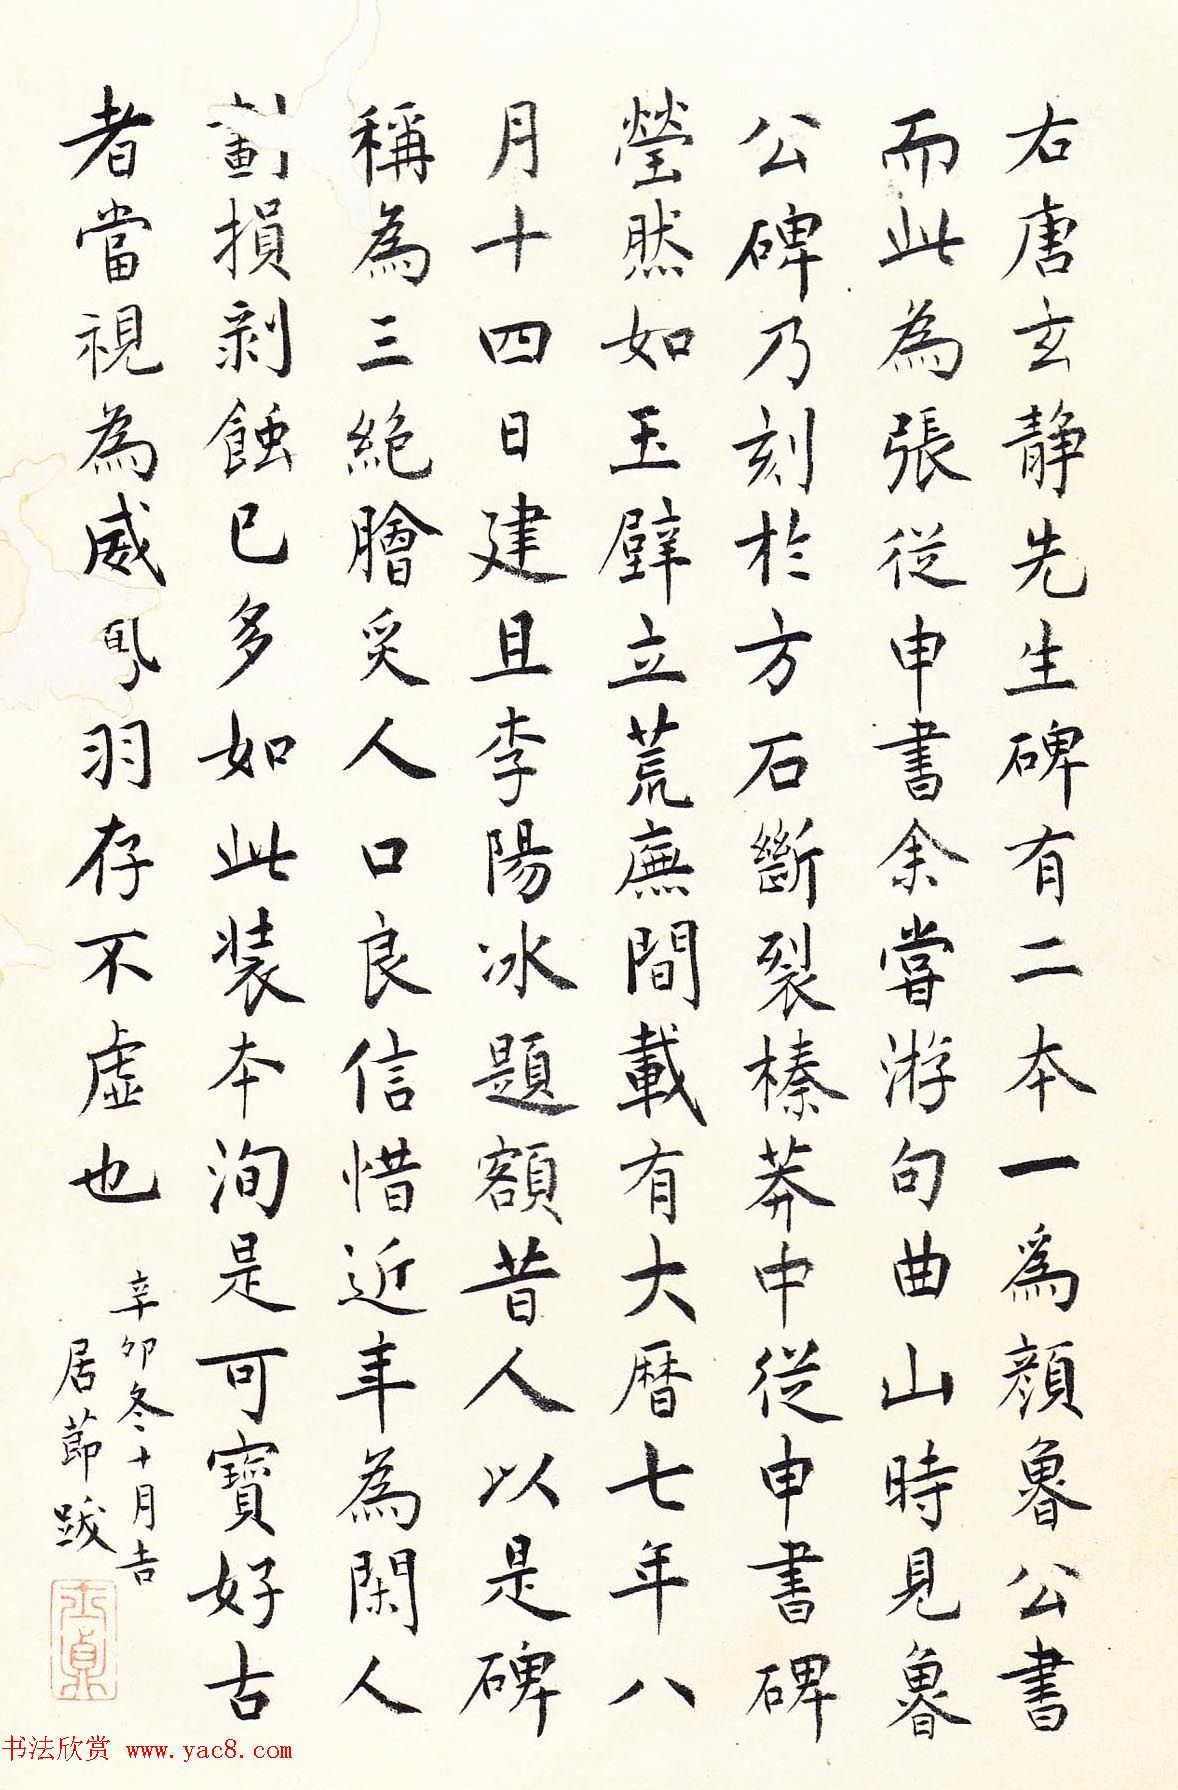 右唐玄静先生碑有二本一爲顔魯公書
而此為張從申書余嘗游句曲山時見魯
公碑乃刻於方石斷裂榛莽中從申書碑
瑩然如玉壁立荒廡間載有大曆七年八
月十四日建且李陽冰題額昔人以是碑
稱為三絶膾炙人口良信惜近年為閑人
劃損剥蝕已多如此装本洵是可寶好古
者當視為威鳳羽存不虚也
辛卯冬十月吉
居節跋
士貞
书法欣赏 www.yac8.com